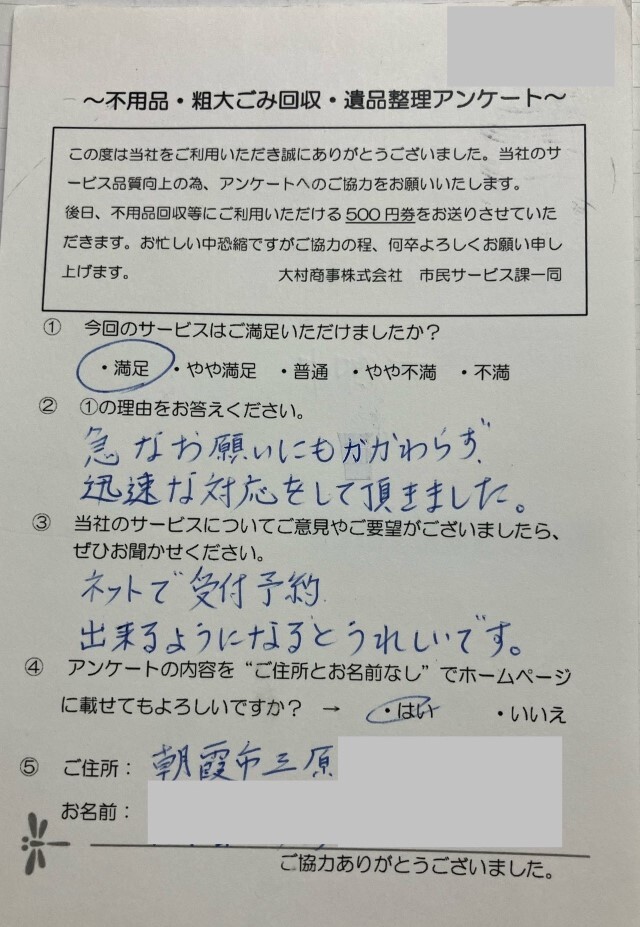 ～不用品・粗大ごみ回収・遺品整理アンケート～
この度は当社をご利用いただき誠にありがとうございました。当社のサ
ービス品質向上の為、アンケートへのご協力をお願いいたします。
後日、不用品回収等にご利用いただける500円券をお送りさせていた
だきます。お忙しい中恐縮ですがご協力の程、何卒よろしくお願い申し
上げます。 大村商事株式会社 市民サービス課一同
① 今回のサービスはご満足いただけましたか？
・満足 ・やや満足 ・普通 ・やや不満 ・不満
② ①の理由をお答えください。
急なお願いにもかかわらず、
迅速な対応をして頂きました。
③ 当社のサービスについてご意見やご要望がございましたら、
ぜひお聞かせください。
ネットで受付予約
出来るようになるとうれしいです。
④ アンケートの内容を“ご住所とお名前なし”でホームページ
に載せてもよろしいですか？ → ・はい ・いいえ
⑤ ご住所： 朝霞市三原
お名前：
ご協力ありがとうございました。